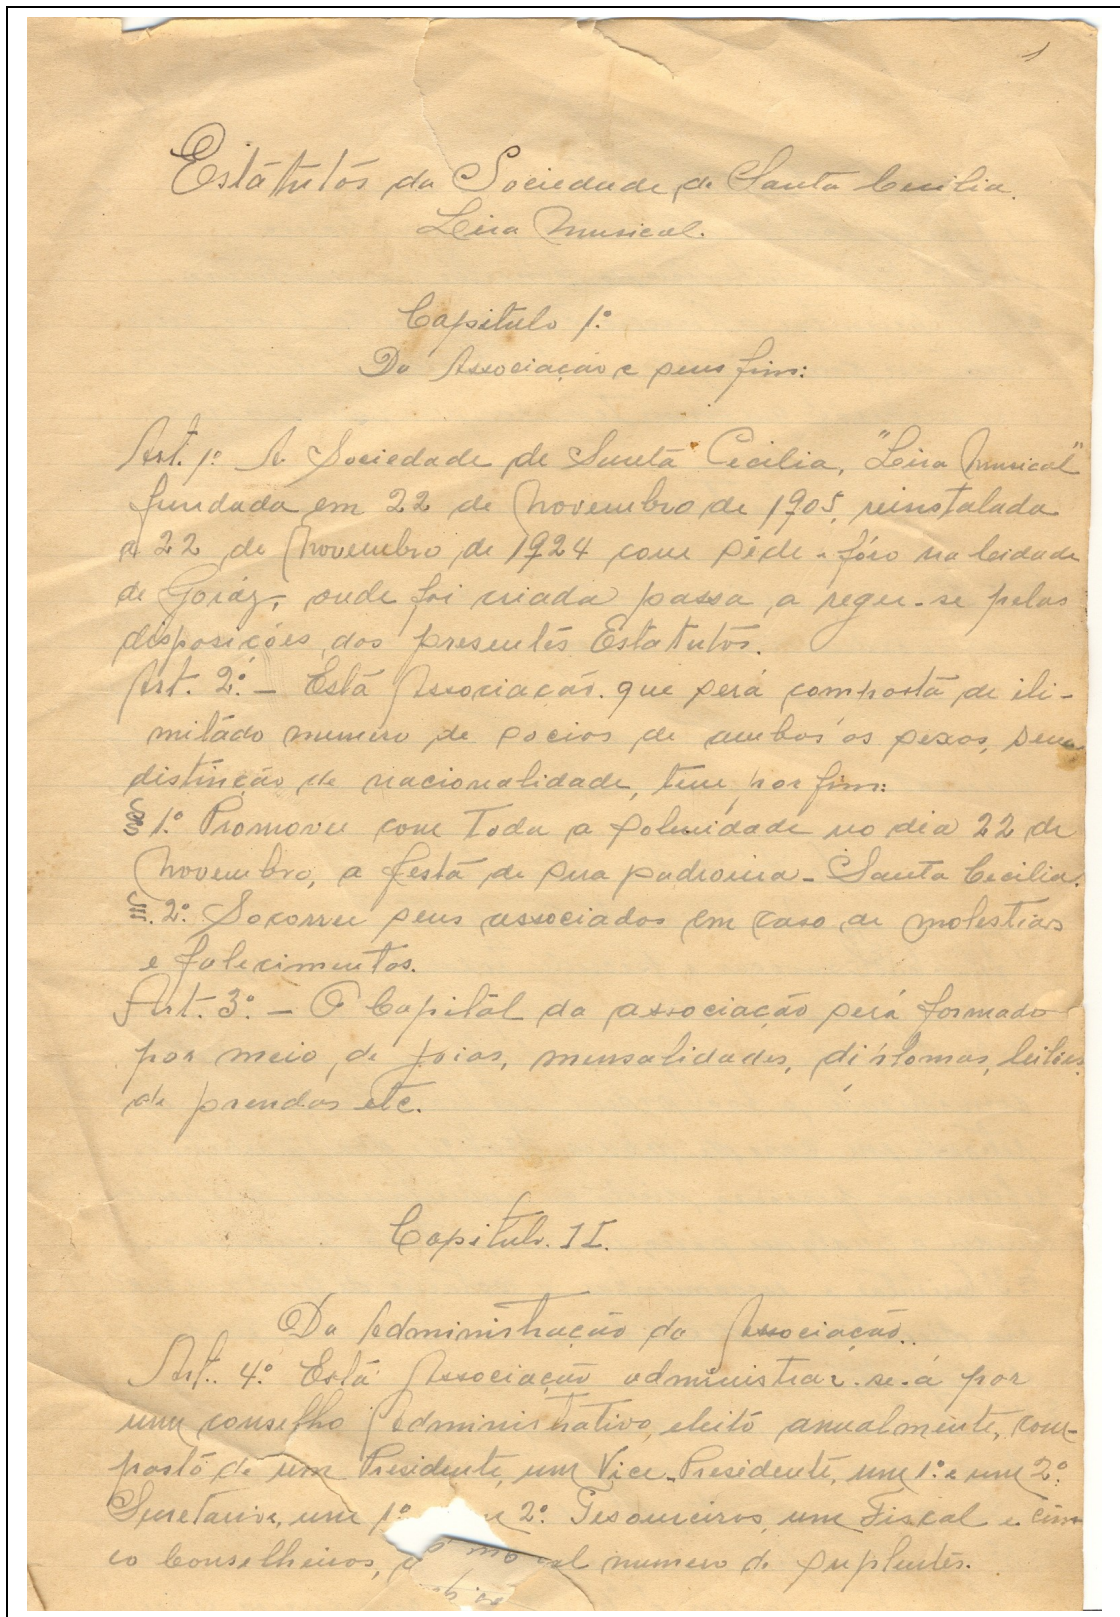 1
Estátutós da Sociedade de Santa Cecilia.
Leira Musical.
Capitulo 1.º
Da Associação e seus fins:
Art. 1º A Sociedade de Santa Cecilia, "Leira Musical"
fundada em 22 de Novembro de 1905, reinstalada
a 22 de Novembro de 1924 com séde e fóro na Cidade
de Goiáz, onde foi criada passa a reger-se pelas
disposições dos presentes Estatutos.
Art. 2º – Está Associação que será composta de ili-
mitádo numero de socios de ambos os sexos, sem
distinção de nacionalidade, tem por fim:
§ 1º Promover com toda a solenidade no dia 22 de
Novembro, a festa de sua padroeira – Santa Cecilia.
§ 2º Socorrer seus associados em caso de molestias
e falecimentos.
Art. 3º – O Capital da associação será formado
por meio de joias, mensalidades, diplomas, leilões
de prendas etc.
Capitulo II.
Da Administração da Associação.
Art. 4º Está Associação administrar-se-á por
um conselho Administrativo, eleito anualmente, com-
posto de um Presidente, um Vice-Presidente, um 1º e um 2º
Secretarios, um 1º 2º Tesoureiros, um Fiscal e cin-
co Conselheiros, numero de suplentes.